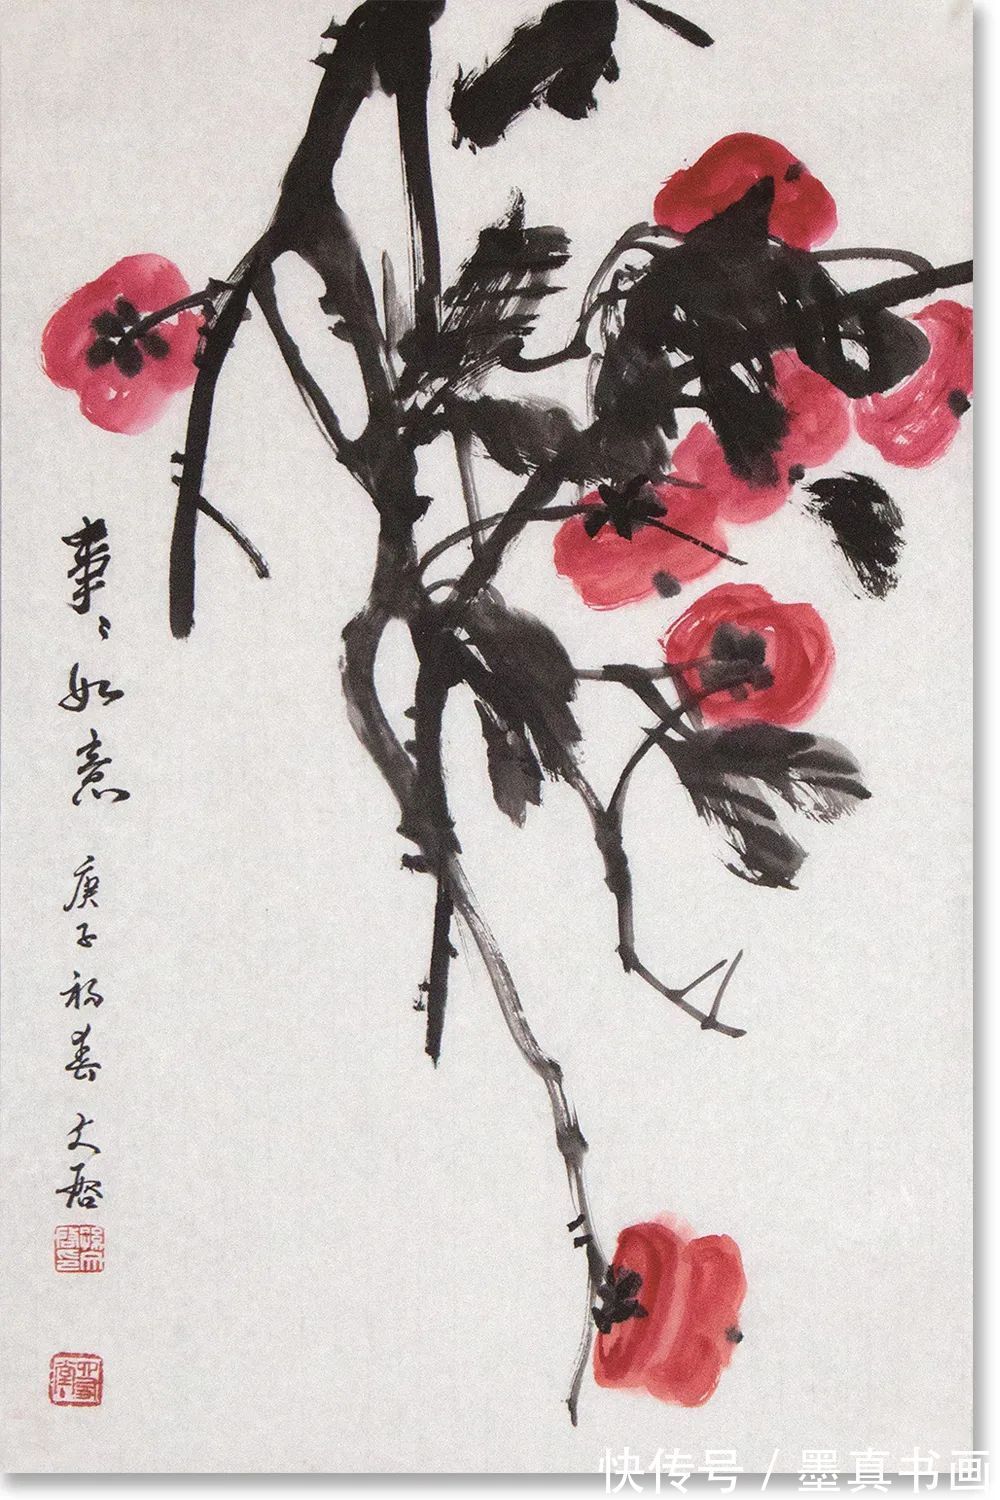 事〻如意 庚子初春 文启
快传号 / 墨真书画